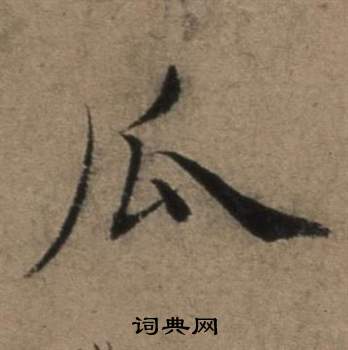 瓜
词典网